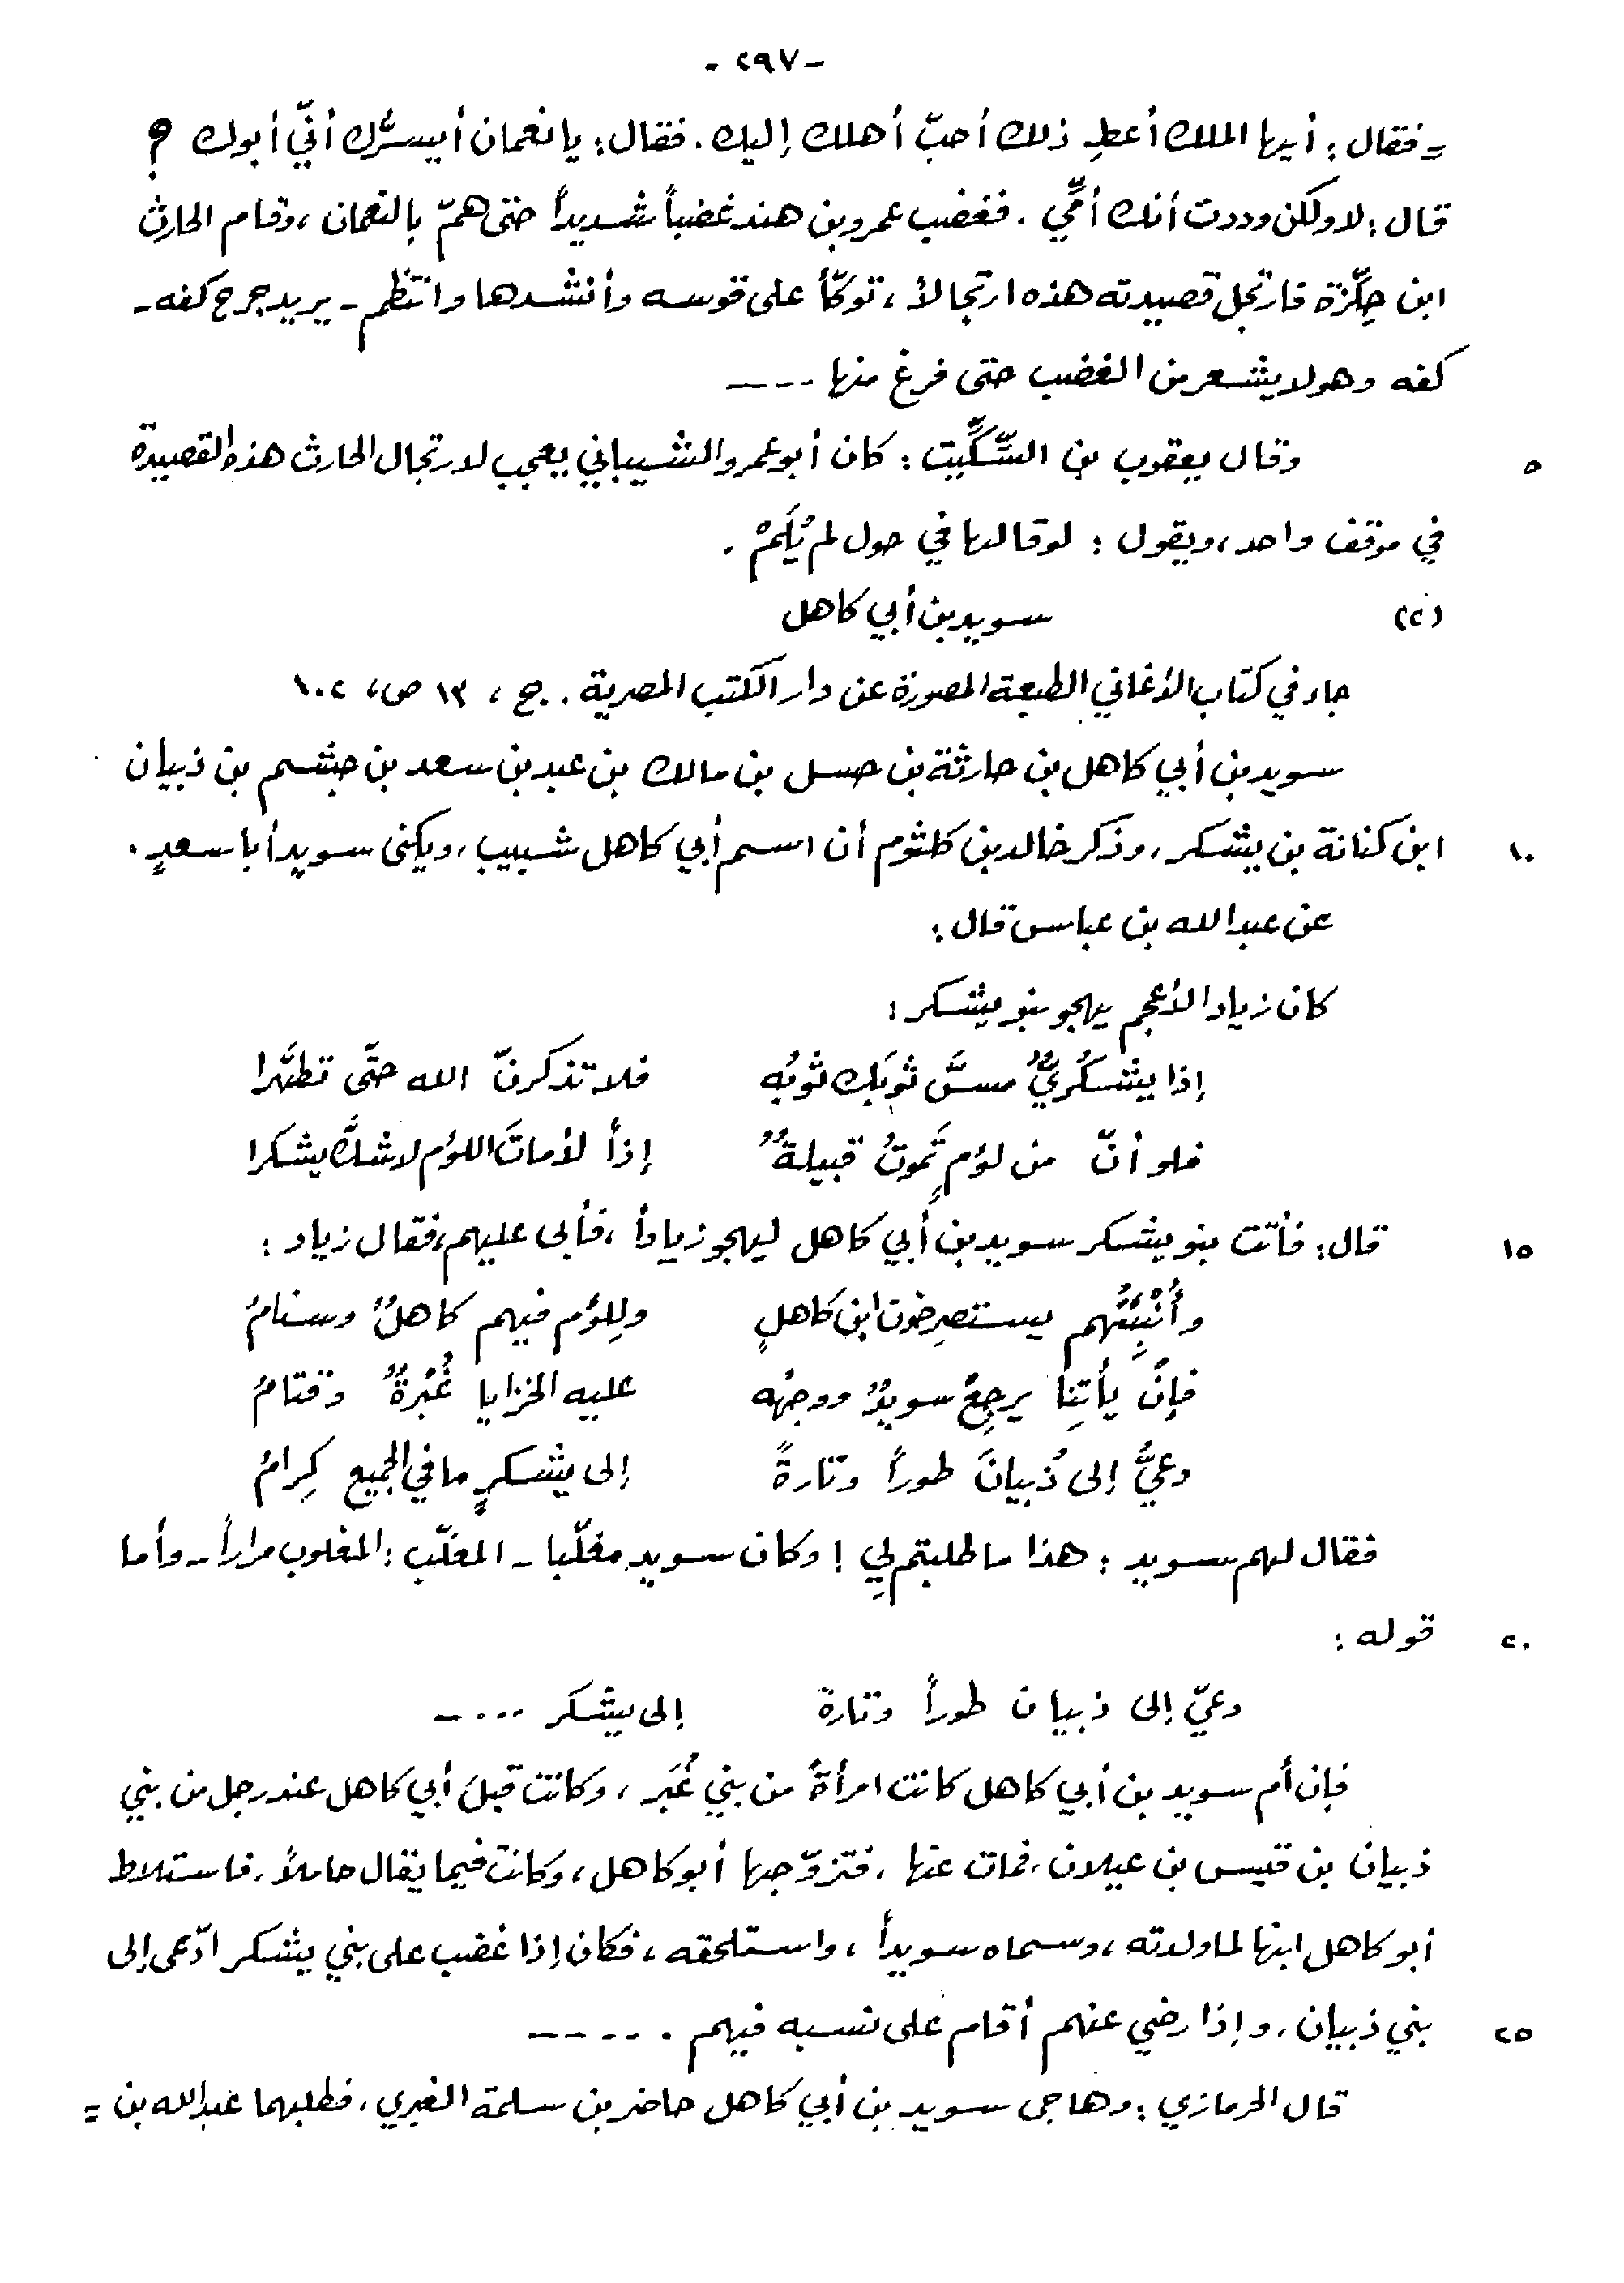 - ٢٩٧ -
= فقال : أيها الملك أعطِ ذلك أحبّ أهلك إليك . فقال : يا نعمان أيسرُّك أنّي أبوك ؟
قال : لا ولكن وددت أنك أمِّي . فغضب عمرو بن هند غضباً شديداً حتى همّ بالنعمان ، وقام الحارث
ابن حِلِّزة فارتجل قصيدته هذه ارتجالاً ، توكّأ على قوسه وأنشدها وانتظم - يريد جرح كفه -
كفه وهو لا يشعر من الغضب حتى فرغ منها ----
٥ وقال يعقوب بن السِّكِّيت : كان أبو عمرو الشيباني يعجب لارتجال الحارث هذه القصيدة
في موقف واحد ، ويقول : لو قالها في حول لم يُلَمْ .
(٢) سويد بن أبي كاهل
جاء في كتاب الأغاني الطبعة المصورة عن دار الكتب المصرية . ج ، ١٣ ص ، ١٠٢
سويد بن أبي كاهل بن حارثة بن حسل بن مالك بن عبد بن سعد بن جشم بن ذبيان
١٠ ابن كنانة بن يشكر ، وذكر خالد بن كلثوم أن اسم أبي كاهل شبيب ، ويكنى سويد أبا سعدٍ .
عن عبد الله بن عباس قال :
كان زياد الأعجم يهجو بنو يشكر :
إذا يشكُريٌّ مسَّ ثوبَك ثوبُه فلا تذكرنّ الله حتَّى تطهَّرا
فلو أنّ من لؤمٍ تَموتُ قبيلةٌ إذاً لأماتَ اللؤم لا شكَّ يشكرا
١٥ قال : فأتت بنو يشكر سويد بن أبي كاهل ليهجو زياداً ، فأبى عليهم ، فقال زياد :
وأُنْبِئتُهم يستصرخون ابن كاهلٍ وللؤم فيهم كاهلٌ وسنامُ
فإنْ يأتِنا يرجِعْ سويدٌ ووجهُه عليه الخزايا غُبْرةٌ وقتامُ
دعيٌّ إلى ذُبيانَ طوراً وتارةً إلى يشكرٍ ما في الجميع كِرامُ
فقال لهم سويد : هذا ما طلبتم لي ! وكان سويد مغلّبا - المغلّب : المغلوب مراراً - وأما
٢٠ قوله :
دعيّ إلى ذبيان طوراً وتارة إلى يشكر ----
فإن أم سويد بن أبي كاهل كانت امرأةً من بني غُبَر ، وكانت قبلَ أبي كاهل عند رجل من بني
ذبيان بن قيس بن عيلان ، فمات عنها ، فتزوّجها أبو كاهل ، وكانت فيما يقال حاملاً ، فاستلاط
أبو كاهل ابنها لما ولدته ، وسماه سويداً ، واستلحقه ، فكان إذا غضب على بني يشكر ادّعى إلى
٢٥ بني ذبيان ، وإذا رضي عنهم أقام على نسبه فيهم . -----
قال الحرمازي : وهاجى سويد بن أبي كاهل حاضر بن سلمة الغبري ، فطلبهما عبد الله بن =